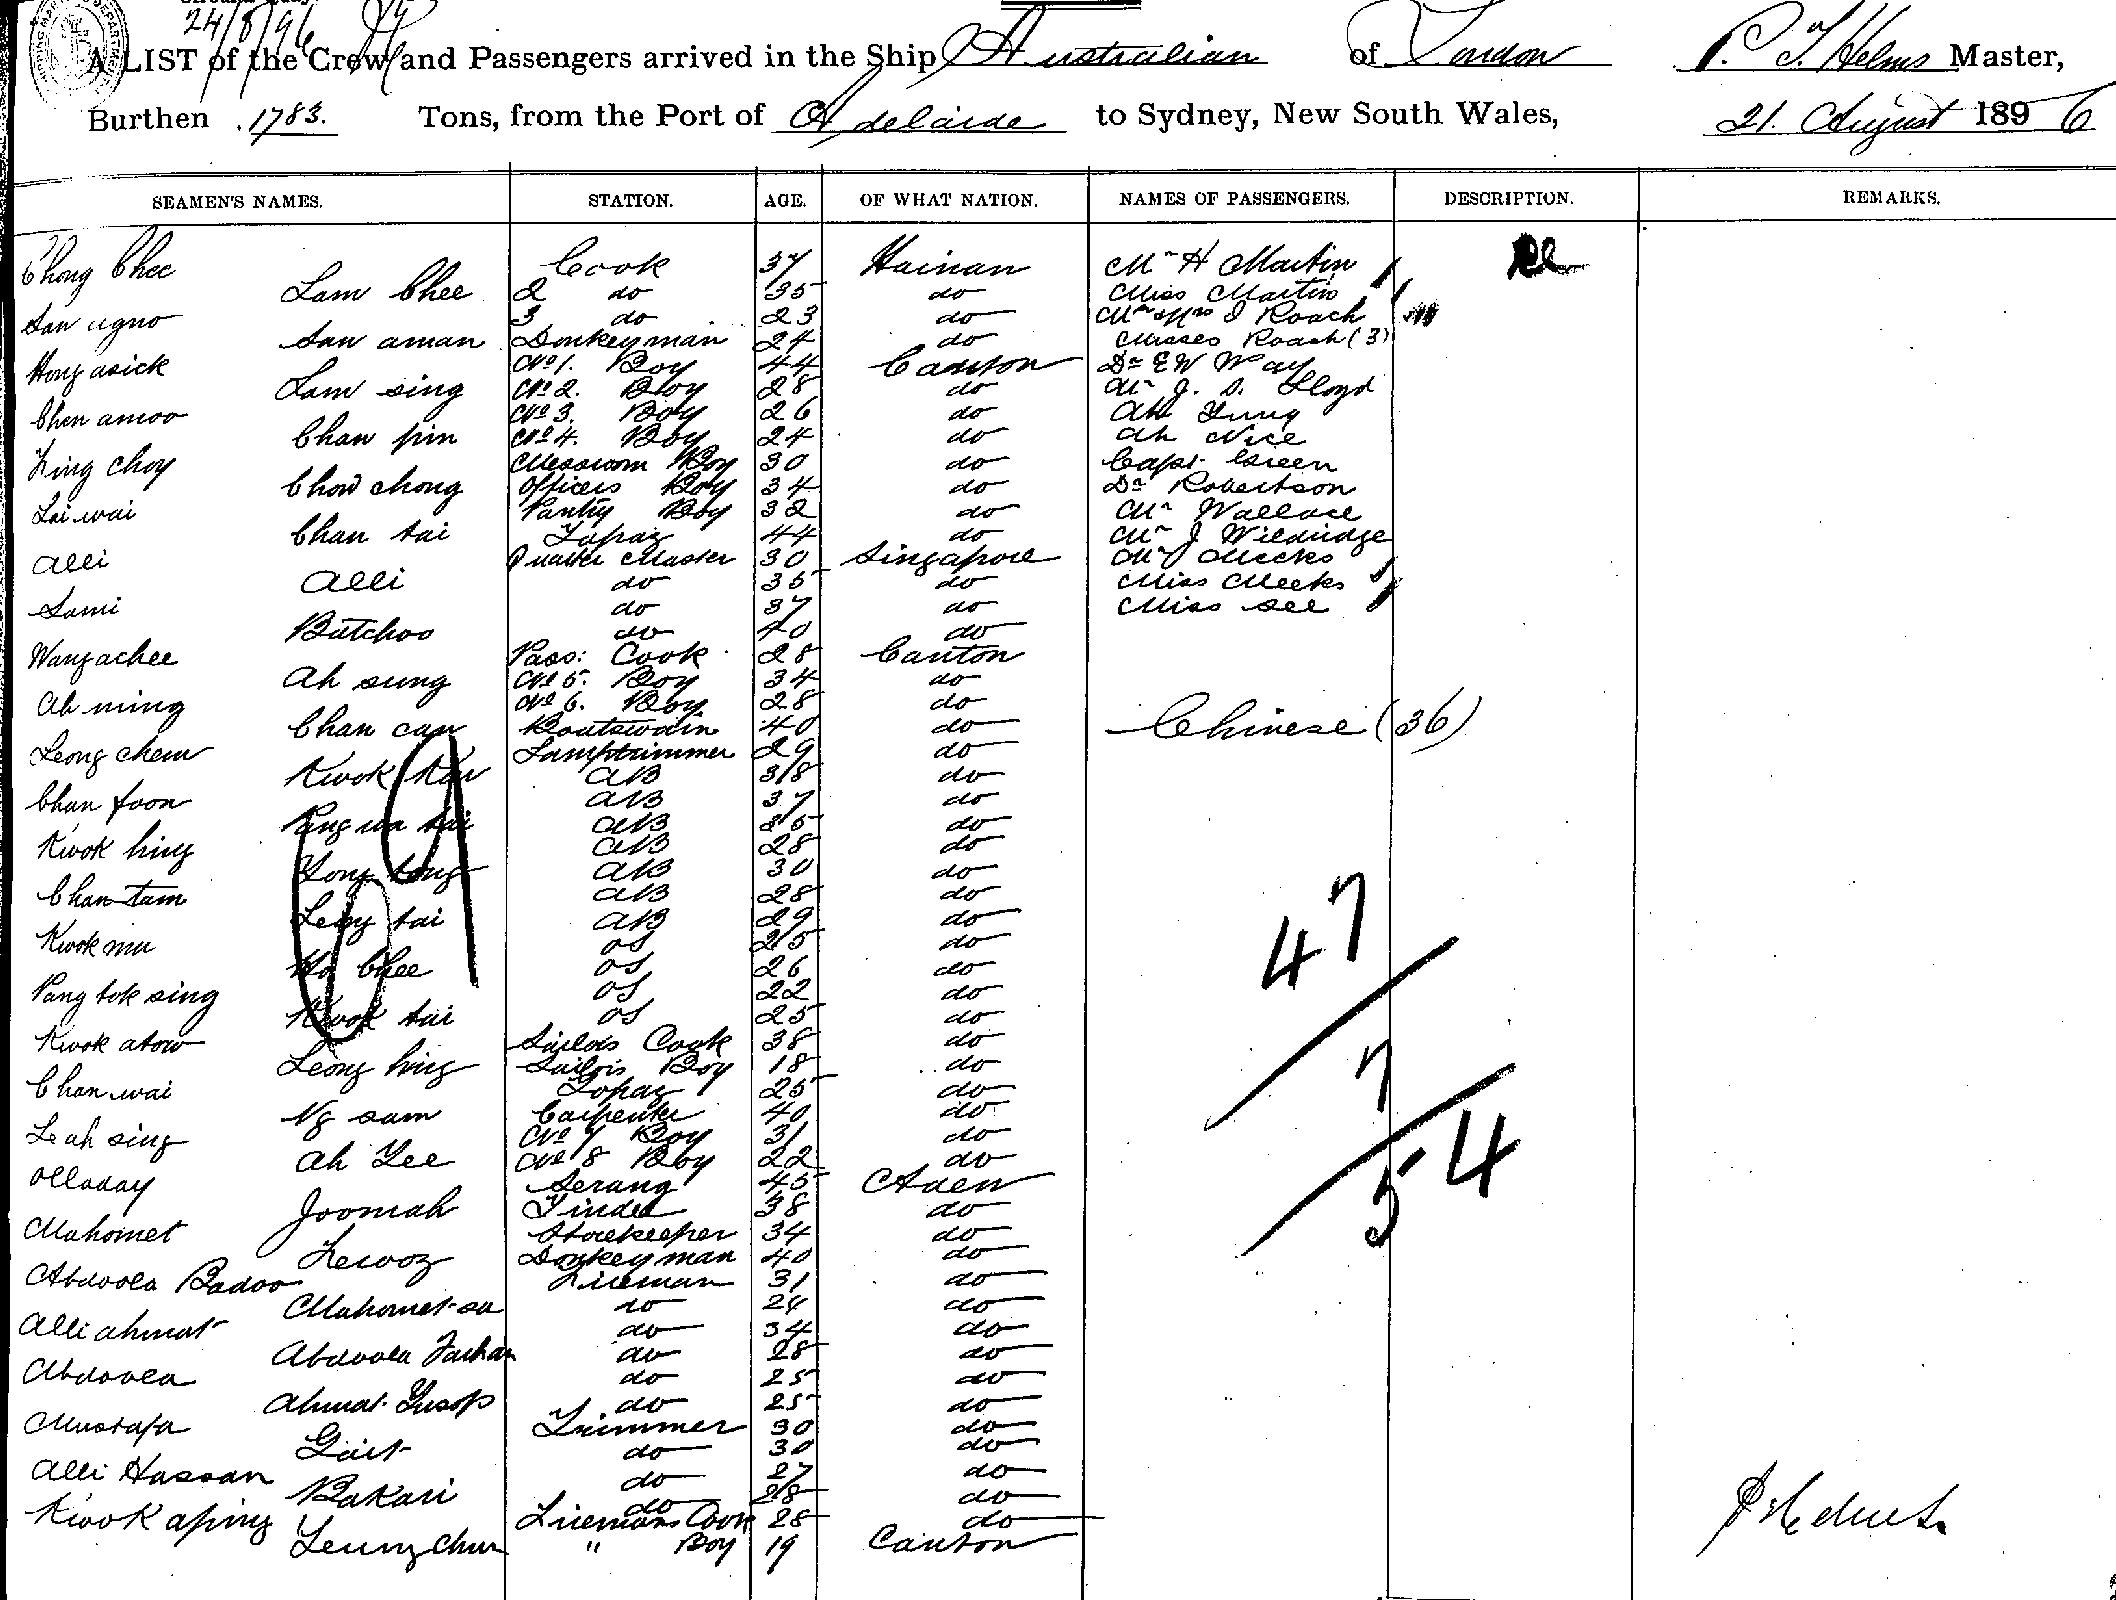 24/8/96
A LIST of the Crew and Passengers arrived in the Ship Australian of London P. T. Helms Master,
Burthen 1783. Tons, from the Port of Adelaide to Sydney, New South Wales, 21. August 1896
SEAMEN'S NAMES. STATION. AGE. OF WHAT NATION. NAMES OF PASSENGERS. DESCRIPTION. REMARKS.
Chong Chee Cook 37 Hainan Mr H Martin
Lam Chee 2 do 35 do Miss Martin
San ugno 3 do 23 do Mr Mrs J Roach
San aman Donkeyman 24 do Misses Roach (3)
Hong asick No 1. Boy 44 Canton Dr E W Way
Lam sing No 2. Boy 28 do Mr J. S. Lloyd
Chen amoo No 3. Boy 26 do Ah Yung
Chan pin No 4. Boy 24 do Ah Nice
King choy Messroom Boy 30 do Capt. Green
Chow chong Officers Boy 34 do Dr Robertson
Lai wai Pantry Boy 32 do Mr Wallace
Chan tai Topaz 44 do Mr J Wildridge
Alli Quarter Master 30 Singapore Mr Meeks
Alli do 35 do Miss Meeks
Sami do 37 do Miss See
Batchoo do 40 do
Wangachee Pass: Cook 28 Canton
Ah sung No 5. Boy 34 do
Ah ming No 6. Boy 28 do
Chan can Boatswain 40 do Chinese (36)
Leong chem Lamptrimmer 29 do
Kwok AB 38 do
Chan foon AB 37 do
tai AB 35 do
Kwok hing AB 28 do
Yong tong AB 30 do
Chan tam AB 28 do
Leong tai AB 29 do
Kwok mu OS 25 do
Ho Chee OS 26 do
Pang tok sing OS 22 do
Kwok tai OS 25 do
Kwok atow Sailors Cook 38 do
Leong hing Sailors Boy 18 do
Chan wai Topaz 25 do
Ng sam Carpenter 40 do
Leah sing No 7 Boy 31 do
Ah Lee No 8 Boy 22 do
Olladay Serang 45 Aden
Joomah Tindal 38 do
Mahomet Storekeeper 34 do
Donkeyman 40 do
Abdoola Badoo Fireman 31 do
Mahomet sa do 24 do
Alli ahmat do 34 do
Abdoola Farhan do 28 do
Abdoola do 25 do
Ahmat Yusop do 25 do
Mustafa Trimmer 30 do
do 30 do
Alli Hassan do 27 do
Bakari do 28 do
Kwok aping Firemans Cook 28 do
Leung Chun " Boy 19 Canton
47
7
54